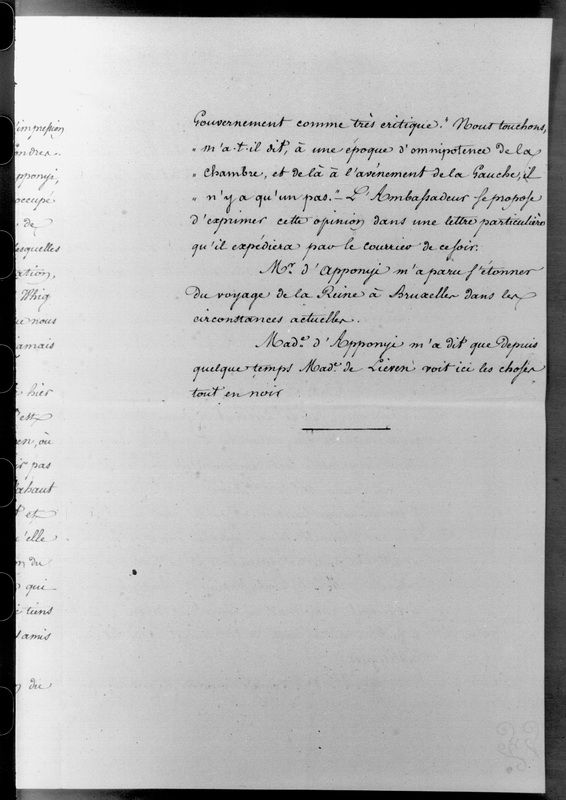 l'impression
ondres.
pponyi,
occupé
de
lesquelles
ation,
Whig
nous
jamais
hier
est
en, où
ir pas
ahaut
et
u'elle
n du
qui
tiens
amis
du
Gouvernement comme très critique. " Nous touchons,
" m'a-t-il dit, à une époque d'omnipotence de la
" Chambre, et de là à l'avènement de la Gauche, il
" n'y a qu'un pas. " L'Ambassadeur se propose
d'exprimer cette opinion dans une lettre particulière
qu'il expédiera par le courrier de ce soir.
Mr. d'Apponyi m'a paru s'étonner
du voyage de la Reine à Bruxelles dans les
circonstances actuelles.
Made. d'Apponyi m'a dit que depuis
quelque temps Made. de Lieven voit ici les choses
tout en noir